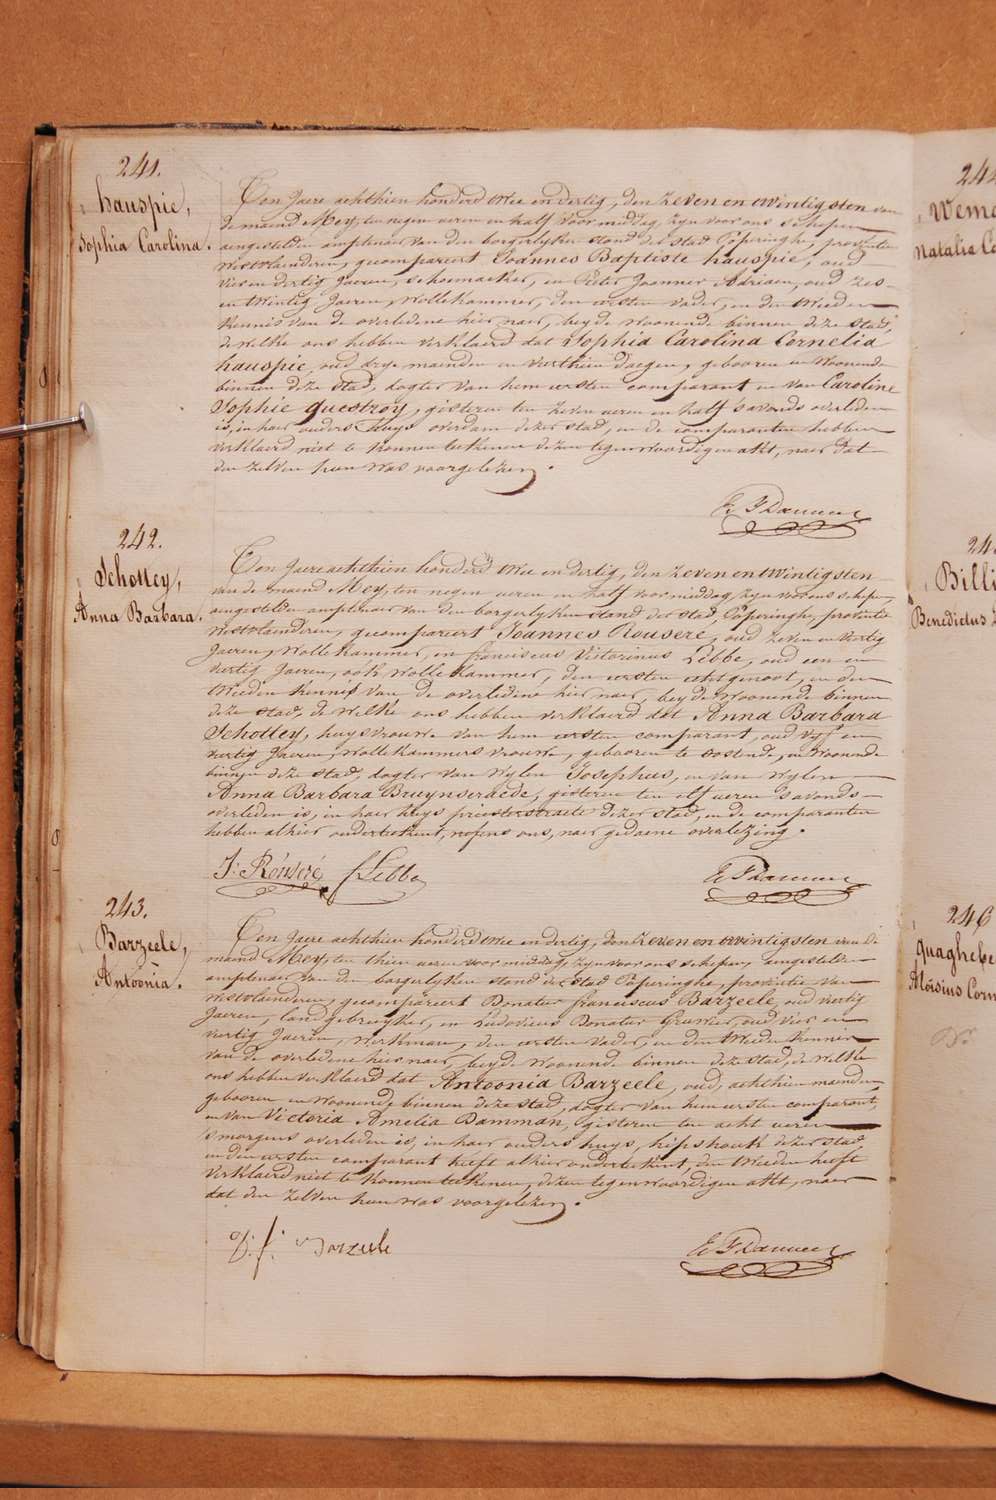 241.
hauspie,
Sophia Carolina.
Ten Jaere achthien honderd twee en dertig, den zeven en twintigsten van
de maend Mey, ten negen ueren en half voor middag, zyn voor ons schepen
aengestelden amptenaer van den borgerlyken stand der stad Poperinghe, provintie
westvlaenderen, gecompareert Joannes Baptiste hauspie, oud
vier en dertig Jaeren, schoemaeker, en Pieter Joannes Adriaen, oud zes-
en twintig Jaeren, wollekammer, den eersten vader, en den tweeden
kennis van de overledene hier naer, beyde woonende binnen deze stad,
de welke ons hebben verklaerd dat Sophia Carolina Cornelia
hauspie, oud drye maenden en veerthien daegen, gebooren en woonende
binnen deze stad, dogter van hem eersten comparant en van Caroline
Sophie Questroy, gisteren ten zeven ueren en half 's avonds overleden
is, in haer ouders huys overdam dezer stad, en de comparanten hebben
verklaerd niet te konnen teekenen dezen tegenwoordigen akt, naer dat
den zelven hun was voorgelezen.
E F Dauuw
242.
Schottey,
Anna Barbara.
Ten Jaere achthien honderd twee en dertig, den zeven en twintigsten
van de maend Mey, ten negen ueren en half voor middag, zyn voor ons schepen,
aengestelden amptenaer van den borgerlyken stand der stad Poperinghe, provintie
westvlaenderen, gecompareert Joannes Rouseré, oud zeven en veertig
Jaeren, wollekammer, en franciscus Victorinus Lebbe, oud een en
veertig Jaeren, ook wollekammer, den eersten echtgenoot, en den
tweeden kennis van de overledene hier naer, beyde woonende binnen
deze stad, de welke ons hebben verklaerd dat Anna Barbara
Schottey, huysvrouwe van hem eersten comparant, oud vyf en
veertig Jaeren, wollekammers vrouwe, gebooren te oostende, en woonende
binnen deze stad, dogter van wylen Josephus, en van wylen
Anna Barbara Bruynseraede, gisteren ten elf ueren 's avonds
overleden is, in haer huys priesterstraete dezer stad, en de comparanten
hebben alhier onderteekent, nefens ons, naer gedaene overlezing.
J: Rouseré f Lebbe
E F Dauuw
243.
Barzeele,
Antoonia.
Ten Jaere achthien honderd twee en dertig, den zeven en twintigsten van de
maend Mey, ten thien ueren voor middag, zyn voor ons schepen, aengestelden
amptenaer van den borgerlyken stand der stad Poperinghe, provintie van
westvlaenderen, gecompareert Donatus franciscus Barzeele, oud veertig
Jaeren, landgebruyker, en Ludovicus Donatus Gruwier, oud vier en
veertig Jaeren, werkman, den eersten vader, en den tweeden kennis
van de overledene hier naer, beyde woonende binnen deze stad, de welke
ons hebben verklaerd dat Antoonia Barzeele, oud, achthien maenden
gebooren en woonende binnen deze stad, dogter van hem eersten comparant,
en van Victoria Amelia Damman, gisteren ten acht ueren
's morgens overleden is, in haer ouders huys, hipshoek dezer stad,
en den eersten comparant heeft alhier onderteekent, den tweeden heeft
verklaerd niet te konnen teekenen, dezen tegenwoordigen akt, naer
dat den zelven hun was voorgelezen.
D: f: Barzeele
E F Dauuw
Natalia
Billi
Benedictus
246
quaghebe
Aloïsius Corn